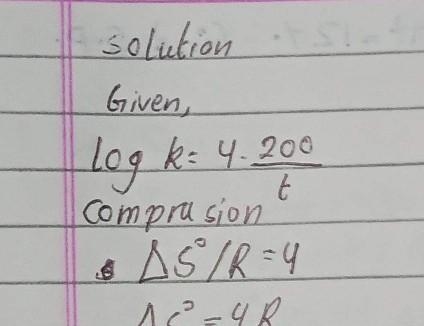 solution
Given,
log k = 4 - 200/t
Comprasion
ΔS°/R = 4
ΔS° = 4R